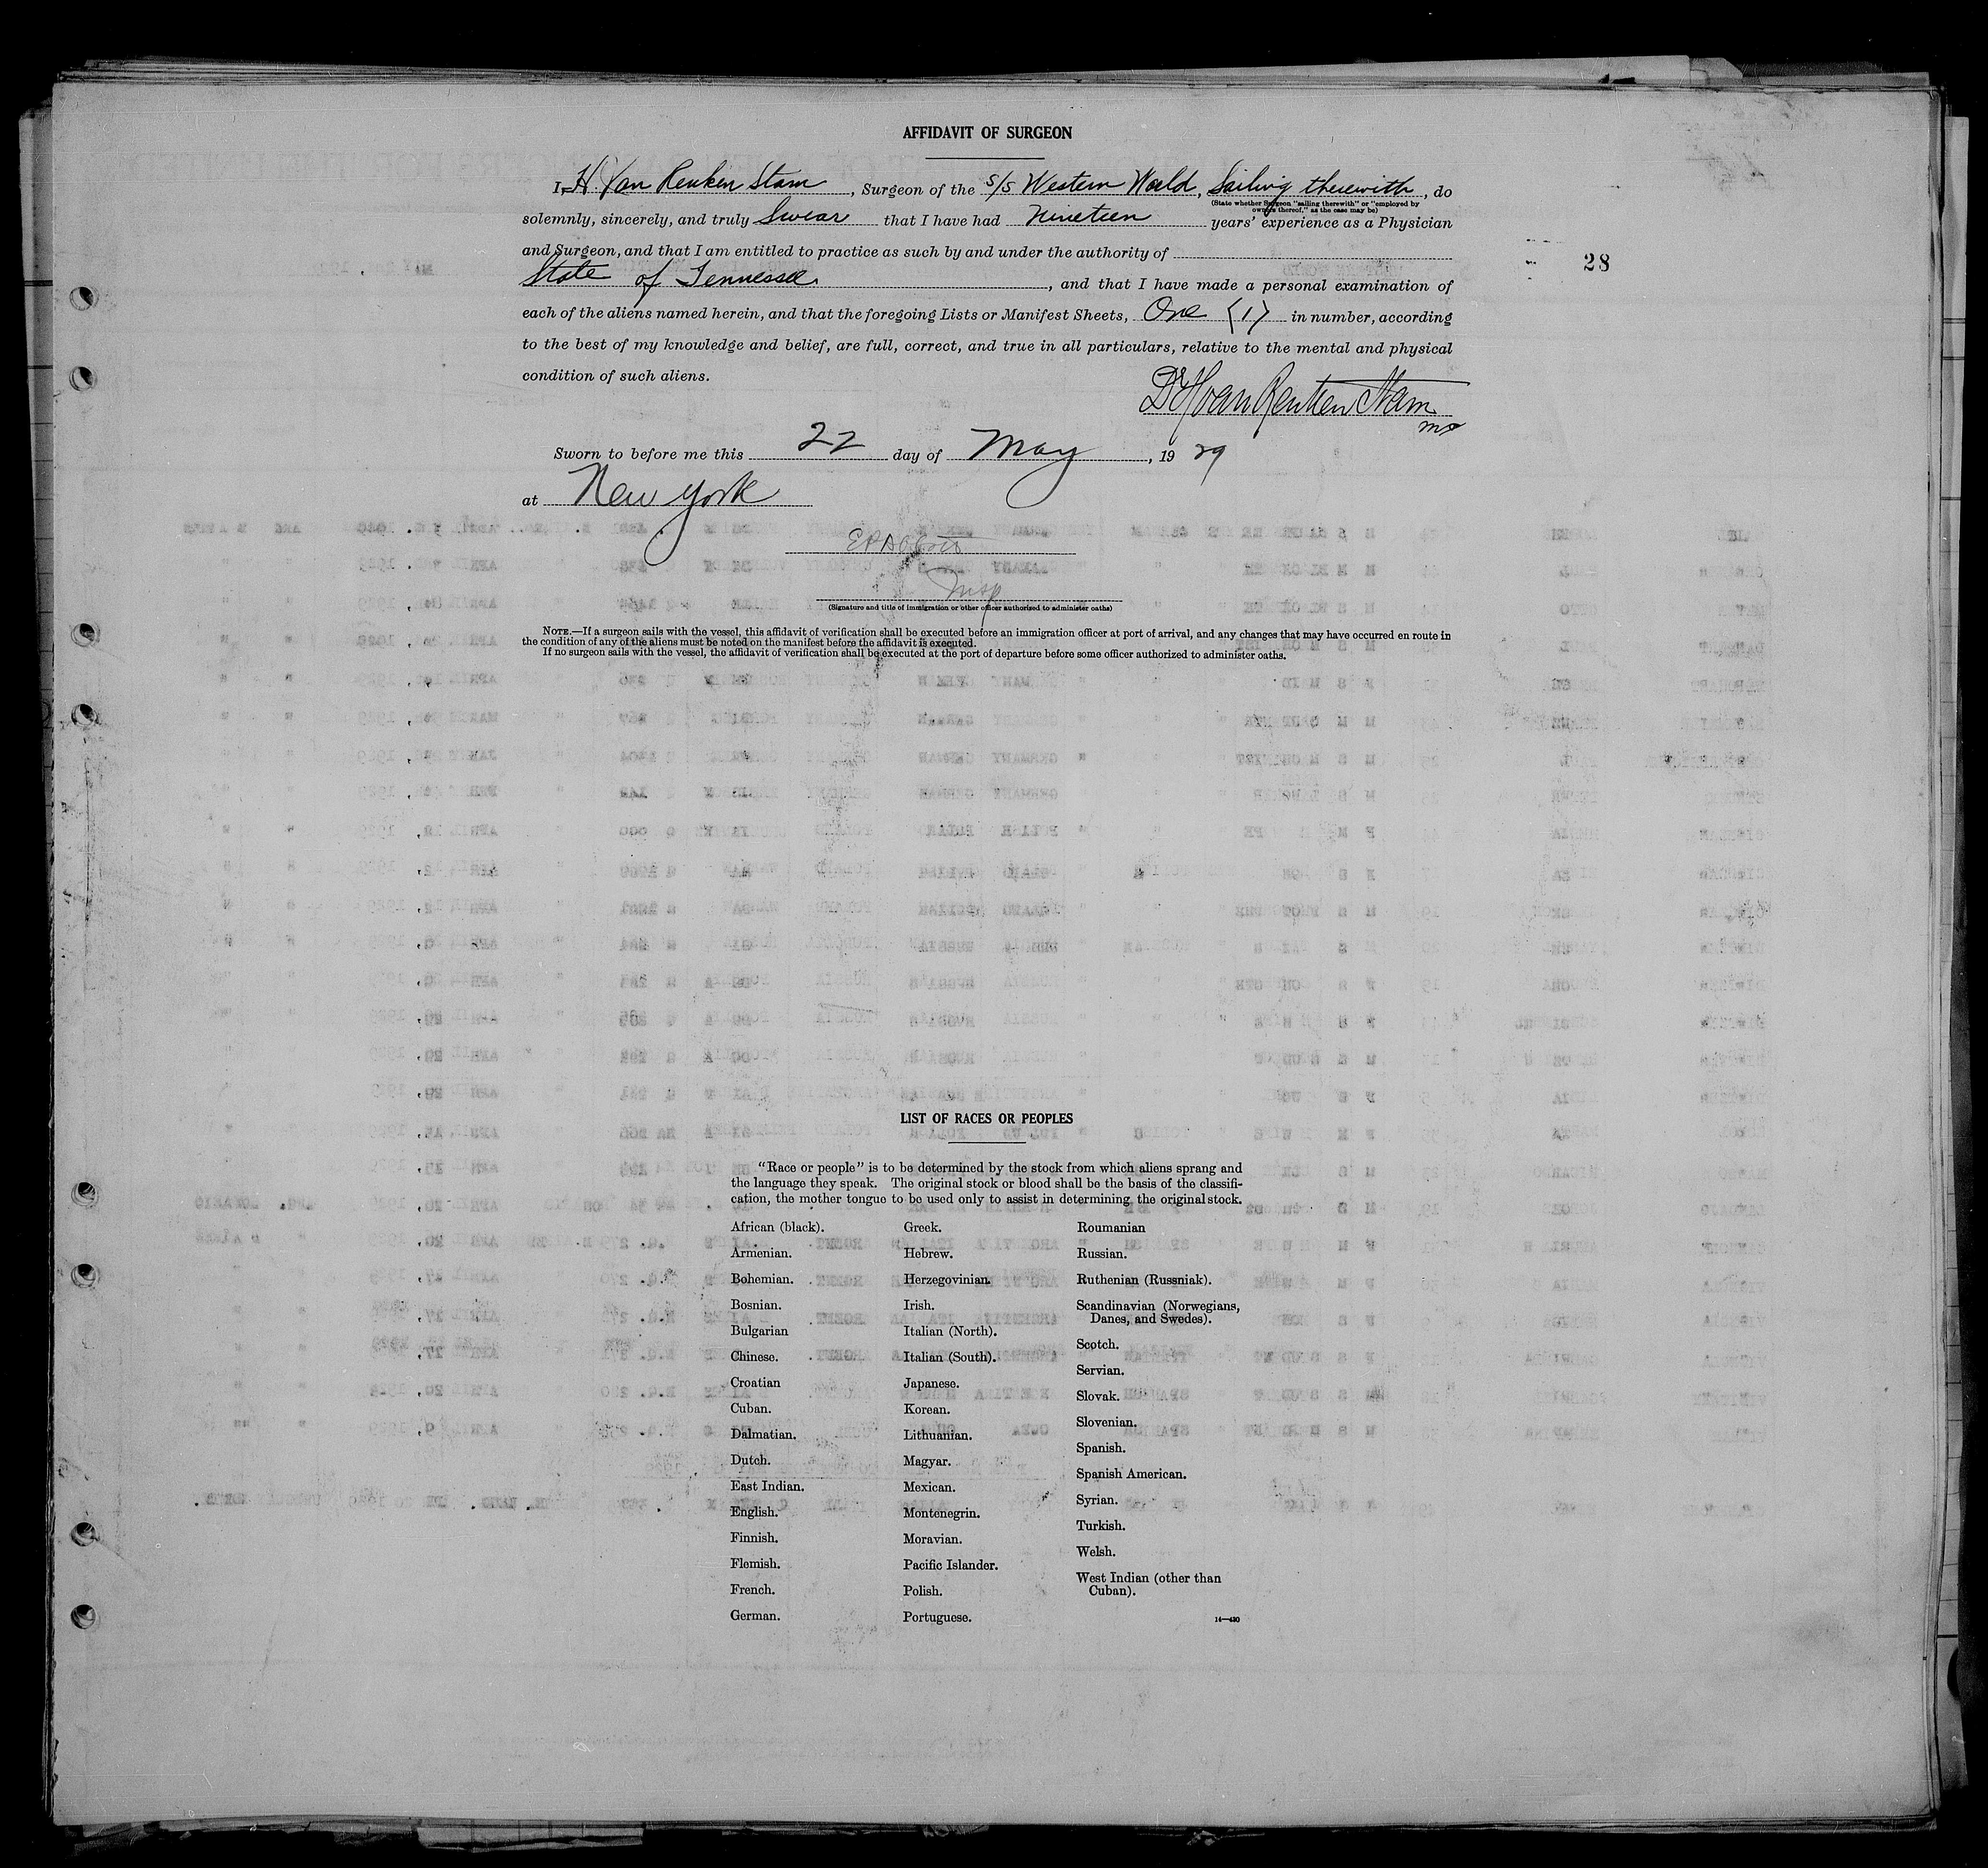 AFFIDAVIT OF SURGEON
I, H. Van Reuken Stam, Surgeon of the S/S Western World, Sailing therewith, do
(State whether Surgeon "sailing therewith" or "employed by
owners thereof," as the case may be)
solemnly, sincerely, and truly Swear that I have had Nineteen years' experience as a Physician
and Surgeon, and that I am entitled to practice as such by and under the authority of
State of Tennessee, and that I have made a personal examination of
28
each of the aliens named herein, and that the foregoing Lists or Manifest Sheets, One (1) in number, according
to the best of my knowledge and belief, are full, correct, and true in all particulars, relative to the mental and physical
condition of such aliens.
Dr H van Reuken Stam
MD
Sworn to before me this 22 day of May, 1929
at New York
Insp
(Signature and title of immigration or other officer authorized to administer oaths)
NOTE.—If a surgeon sails with the vessel, this affidavit of verification shall be executed before an immigration officer at port of arrival, and any changes that may have occurred en route in
the condition of any of the aliens must be noted on the manifest before the affidavit is executed.
If no surgeon sails with the vessel, the affidavit of verification shall be executed at the port of departure before some officer authorized to administer oaths.
LIST OF RACES OR PEOPLES
"Race or people" is to be determined by the stock from which aliens sprang and
the language they speak. The original stock or blood shall be the basis of the classifi-
cation, the mother tongue to be used only to assist in determining the original stock.
African (black).
Armenian.
Bohemian.
Bosnian.
Bulgarian
Chinese.
Croatian
Cuban.
Dalmatian.
Dutch.
East Indian.
English.
Finnish.
Flemish.
French.
German.
Greek.
Hebrew.
Herzegovinian.
Irish.
Italian (North).
Italian (South).
Japanese.
Korean.
Lithuanian.
Magyar.
Mexican.
Montenegrin.
Moravian.
Pacific Islander.
Polish.
Portuguese.
Roumanian
Russian.
Ruthenian (Russniak).
Scandinavian (Norwegians,
Danes, and Swedes).
Scotch.
Servian.
Slovak.
Slovenian.
Spanish.
Spanish American.
Syrian.
Turkish.
Welsh.
West Indian (other than
Cuban).
14—430